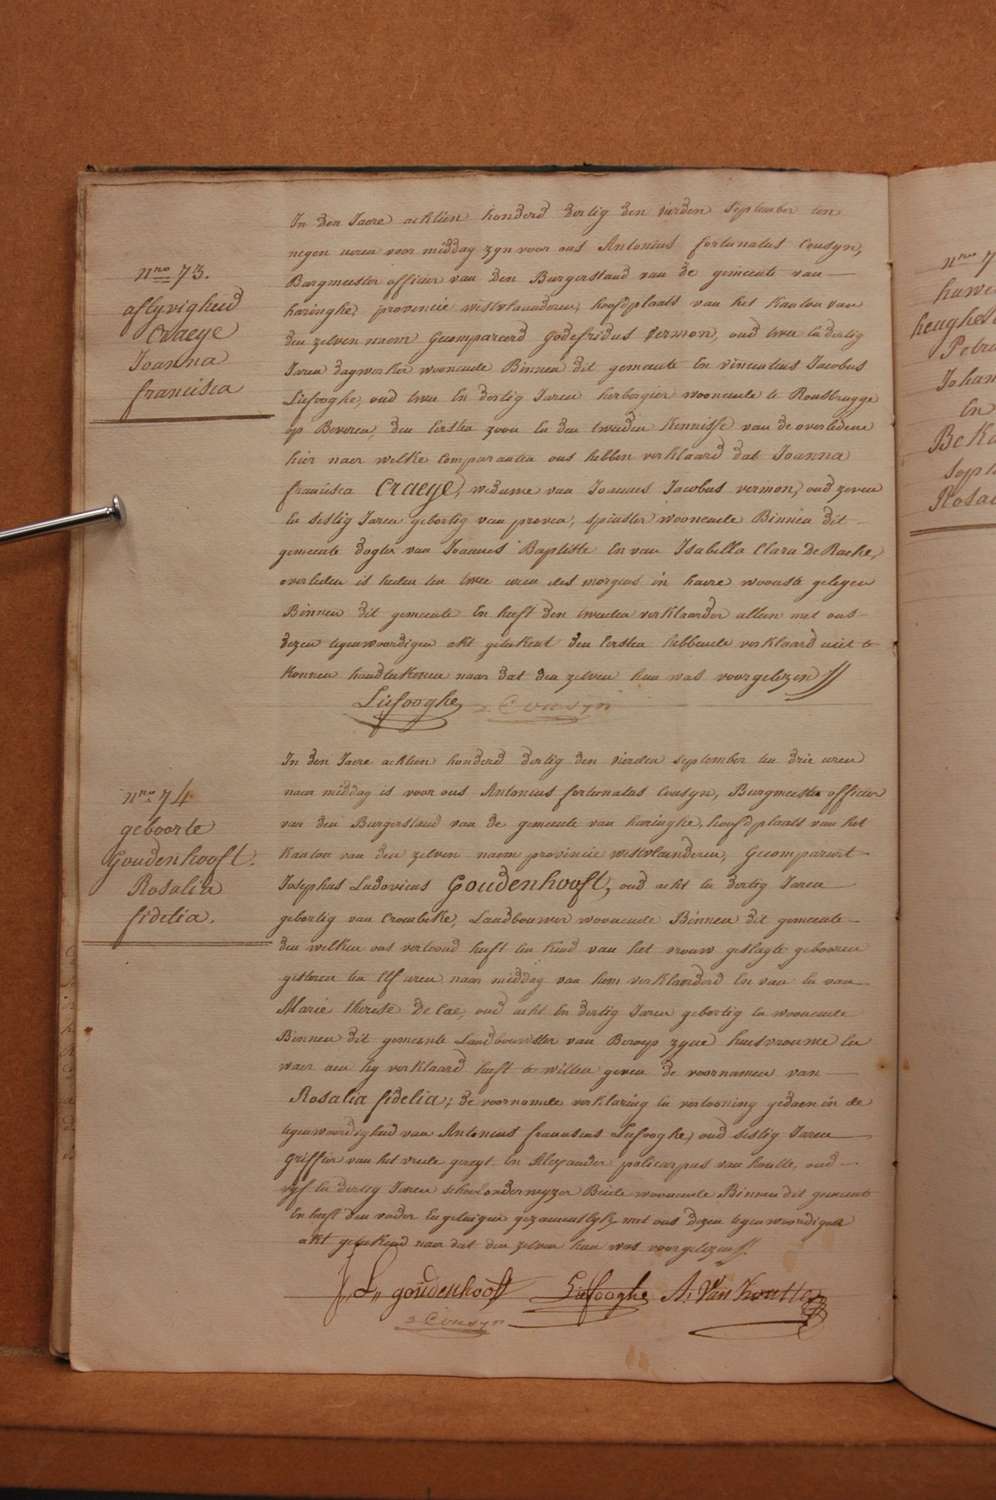 nro 73.
aflyvigheid
Craeye
Joanna
francisca
In den Jaere achtien honderd dertig den vierden september ten
negen uren voor middag zyn voor ons Antonius fortunatus Cousyn,
Burgmeester officier van den Burgerstand van de gemeente van
haringhe, provincie westvlaanderen, hoofdplaats van het kanton van
den zelven naem Gecompareerd Godefridus Vermon, oud twee en dertig
Jaren dagwerker woonende Binnen dit gemeente En vincentius Jacobus
Liefooghe, oud twee En dertig Jaren herbergier woonende te Rousbrugge
op Beveren, den Eersten zoon En den tweeden Kennisse van de overledene
hier naer welke Comparanten ons hebben verklaerd dat Joanna
francisca Craeye, weduwe van Joannes Jacobus vermon, oud zeven
En sestig Jaren gebortig van proven, spinster woonende Binnen dit
gemeente dogter van Joannes Baptiste En van Isabella Clara De Raeke,
overleden is heden ten twee uren des morgens in haere wooniste gelegen
Binnen dit gemeente En heeft den tweeden verklaarder alleen met ons
dezen tegenwoordigen akt geteekent den Eersten hebbende verklaard niet te
konnen handteekenen naer dat den zelven hun was voorgelezen //
Liefooghe Cousyn
nro 74
geboorte
Goudenhooft.
Rosalia
fidelia.
In den Jaere achtien honderd dertig den vierden september ten drie uren
naer middag is voor ons Antonius fortunatus Cousyn, Burgmeester officier
van den Burgerstand van de gemeente van haringhe, hoofdplaats van het
kanton van den zelven naem provincie westvlanderen, Gecompareert
Josephus Ludovicus Goudenhooft, oud acht En dertig Jaren
gebortig van Crombeke, Landbouwer woonende Binnen dit gemeente
den welken ons vertoond heeft Een kind van het vrouw geslagte gebooren
gisteren ten Elf uren naer middag van hem verklaarderd En van En van
Marie therese De Cae, oud acht En dertig Jaren gebortig En woonende
Binnen dit gemeente Landbouwster van Beroep zyne huisvrouwe En
waer aen hy verklaerd heeft te willen geven de voornamen van
Rosalia fidelia; de voornoemde verklaring En vertooning gedaen in de
tegenwoordigheid van Antonius franciscus Liefooghe, oud sestig Jaren
Griffier van het vrede geregt En Alexander policarpus van houtte, oud
vyf En dertig Jaren schoolonderwyzer Beide woonende Binnen dit gemeente
En heeft den vader En getuigen gezamentlyk met ons dezen tegenwoordigen
akt geteekend naer dat den zelven hun was voorgelezen //.
J. L. goudenhooft Liefooghe A. Van Houtte
Cousyn
nro 7
Petru
Johan
En
Rosal